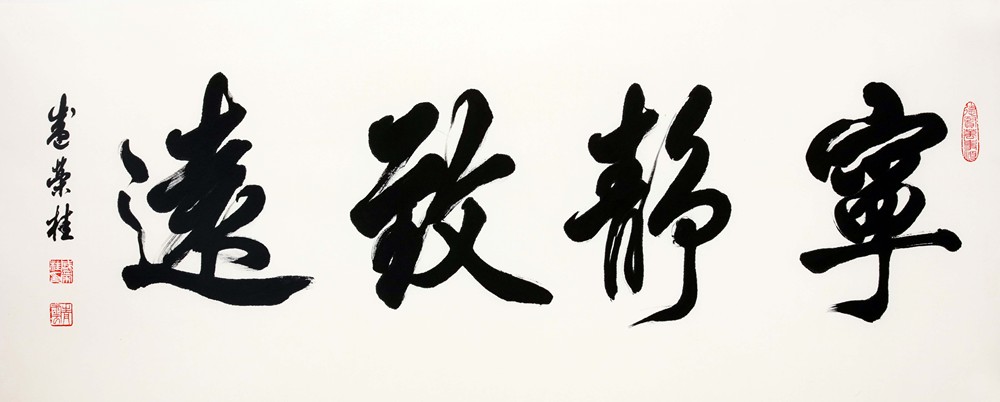 寧靜致遠
榮桂